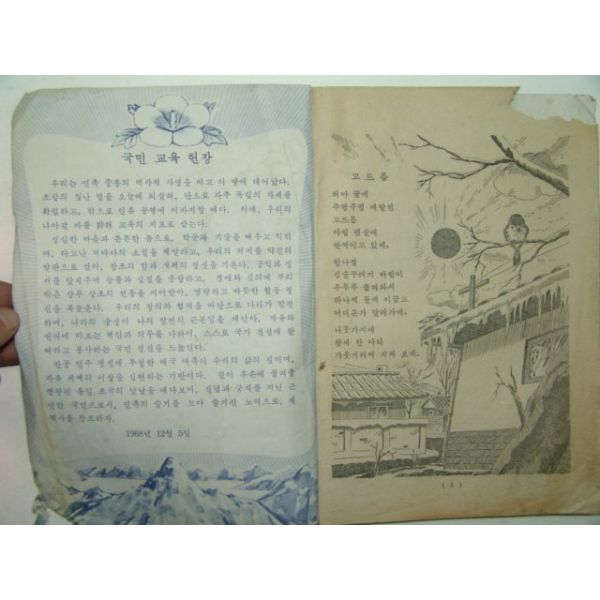 국민 교육 헌장
우리는 민족 중흥의 역사적 사명을 띠고 이 땅에 태어났다.
조상의 빛난 얼을 오늘에 되살려, 안으로 자주 독립의 자세를
확립하고, 밖으로 인류 공영에 이바지할 때다. 이에, 우리의
나아갈 바를 밝혀 교육의 지표로 삼는다.
성실한 마음과 튼튼한 몸으로, 학문과 기술을 배우고 익히
며, 타고난 저마다의 소질을 계발하고, 우리의 처지를 약진의
발판으로 삼아, 창조의 힘과 개척의 정신을 기른다. 공익과 질
서를 앞세우며 능률과 실질을 숭상하고, 경애와 신의에 뿌리
박은 상부 상조의 전통을 이어받아, 명랑하고 따뜻한 협동 정
신을 북돋운다. 우리의 창의와 협력을 바탕으로 나라가 발전
하며, 나라의 융성이 나의 발전의 근본임을 깨달아, 자유와
권리에 따르는 책임과 의무를 다하며, 스스로 국가 건설에 참
여하고 봉사하는 국민 정신을 드높인다.
반공 민주 정신에 투철한 애국 애족이 우리의 삶의 길이며,
자유 세계의 이상을 실현하는 기반이다. 길이 후손에 물려줄
영광된 통일 조국의 앞날을 내다보며, 신념과 긍지를 지닌 근
면한 국민으로서, 민족의 슬기를 모아 줄기찬 노력으로, 새
역사를 창조하자.
1968년 12월 5일
고드름
처마 끝에
주렁주렁 매달린
고드름
아침 햇볕에
반짝이고 있네.
한나절
심술꾸러기 바람이
우루루 몰려와서
하나씩 둘씩 이끌고
어디론가 달려가네.
나뭇가지에
참새 한 마리
가웃거리며 지켜 보네.
( 3 )